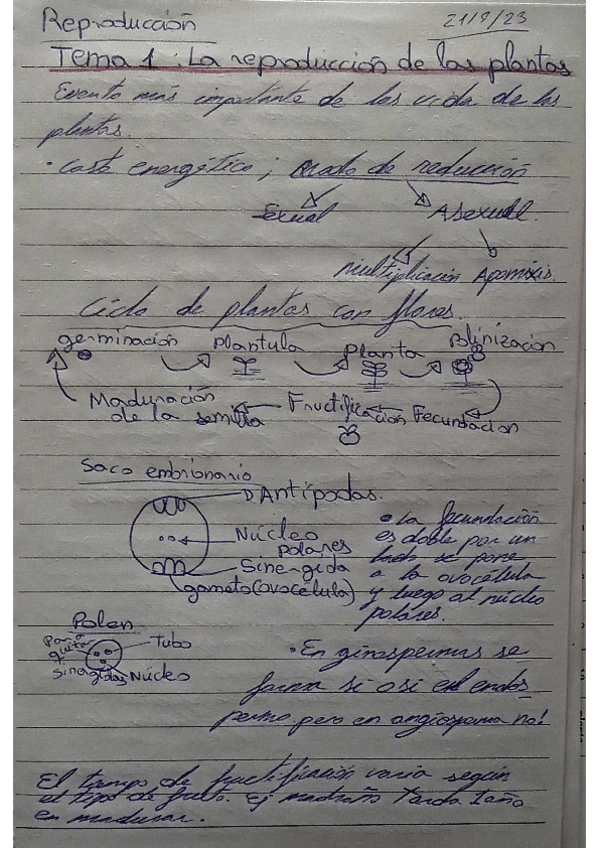 Reproducción 21/9/23
Tema 1: La reproducción de las plantas
Evento más importante de las vida de las
plantas.
• Coste energético; modo de reducción
Sexual Asexual.
multiplicación Apomixis.
Ciclo de plantas con flores.
germinación plantula planta Polinización
Maduración de la semilla Fructificación Fecundación
Saco embrionario
Antípodas.
Núcleo polares
Sinergida
gameto (ovocélula)
• La fecundación
es doble por un
lado se pone
a la ovocélula
y luego al núcleo
polares.
Polen
Para quitar sinergidas
Tubo
Núcleo
• En ginospermas se
forma si o si el endos
permo pero en angiosperma no!
El tiempo de fructificación varia según
el tipo de fruto. Ej madroño Tarda 1año
en madurar.